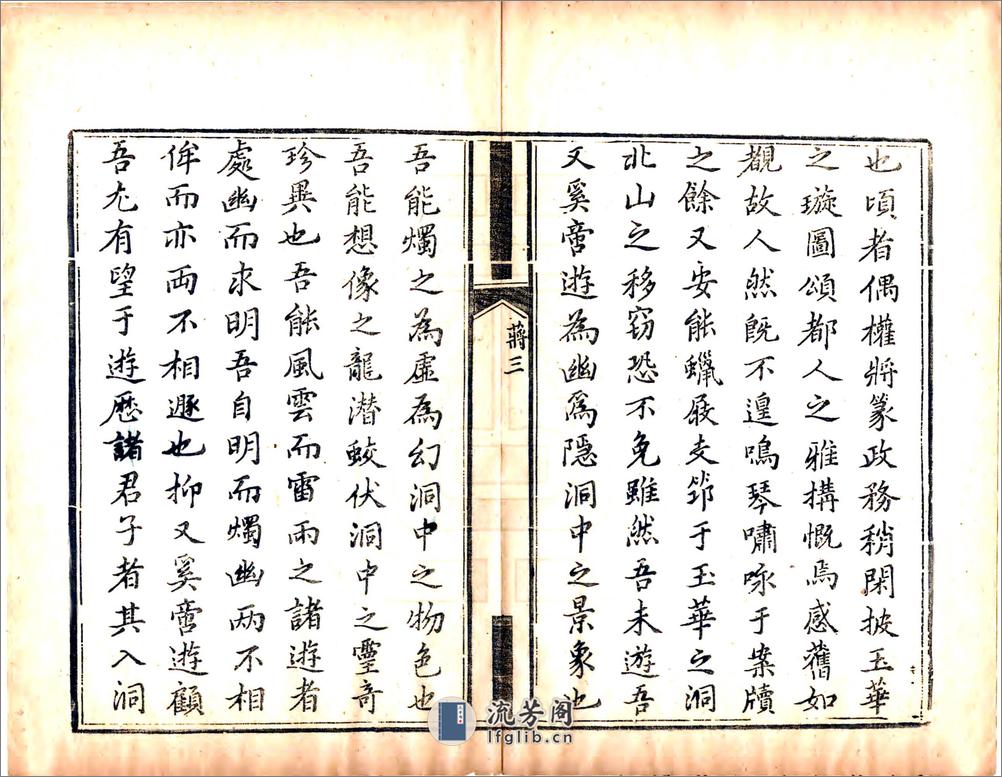 也頃者偶權將篆政務稍閑披玉華
之璇圖頌都人之雅搆慨焉感舊如
覩故人然既不遑鳴琴嘯咏于案牘
之餘又安能蠟屐支笻于玉華之洞
北山之移竊恐不免雖然吾未遊吾
又奚啻遊為幽為隱洞中之景象也
蔣三
吾能燭之為虛為幻洞中之物色也
吾能想像之龍潛蛟伏洞中之靈奇
珍異也吾能風雲而雷雨之諸遊者
處幽而求明吾自明而燭幽兩不相
侔而亦兩不相遯也抑又奚啻遊顧
吾尤有望于遊歷諸君子者其入洞
流芳阁
lfglib.cn